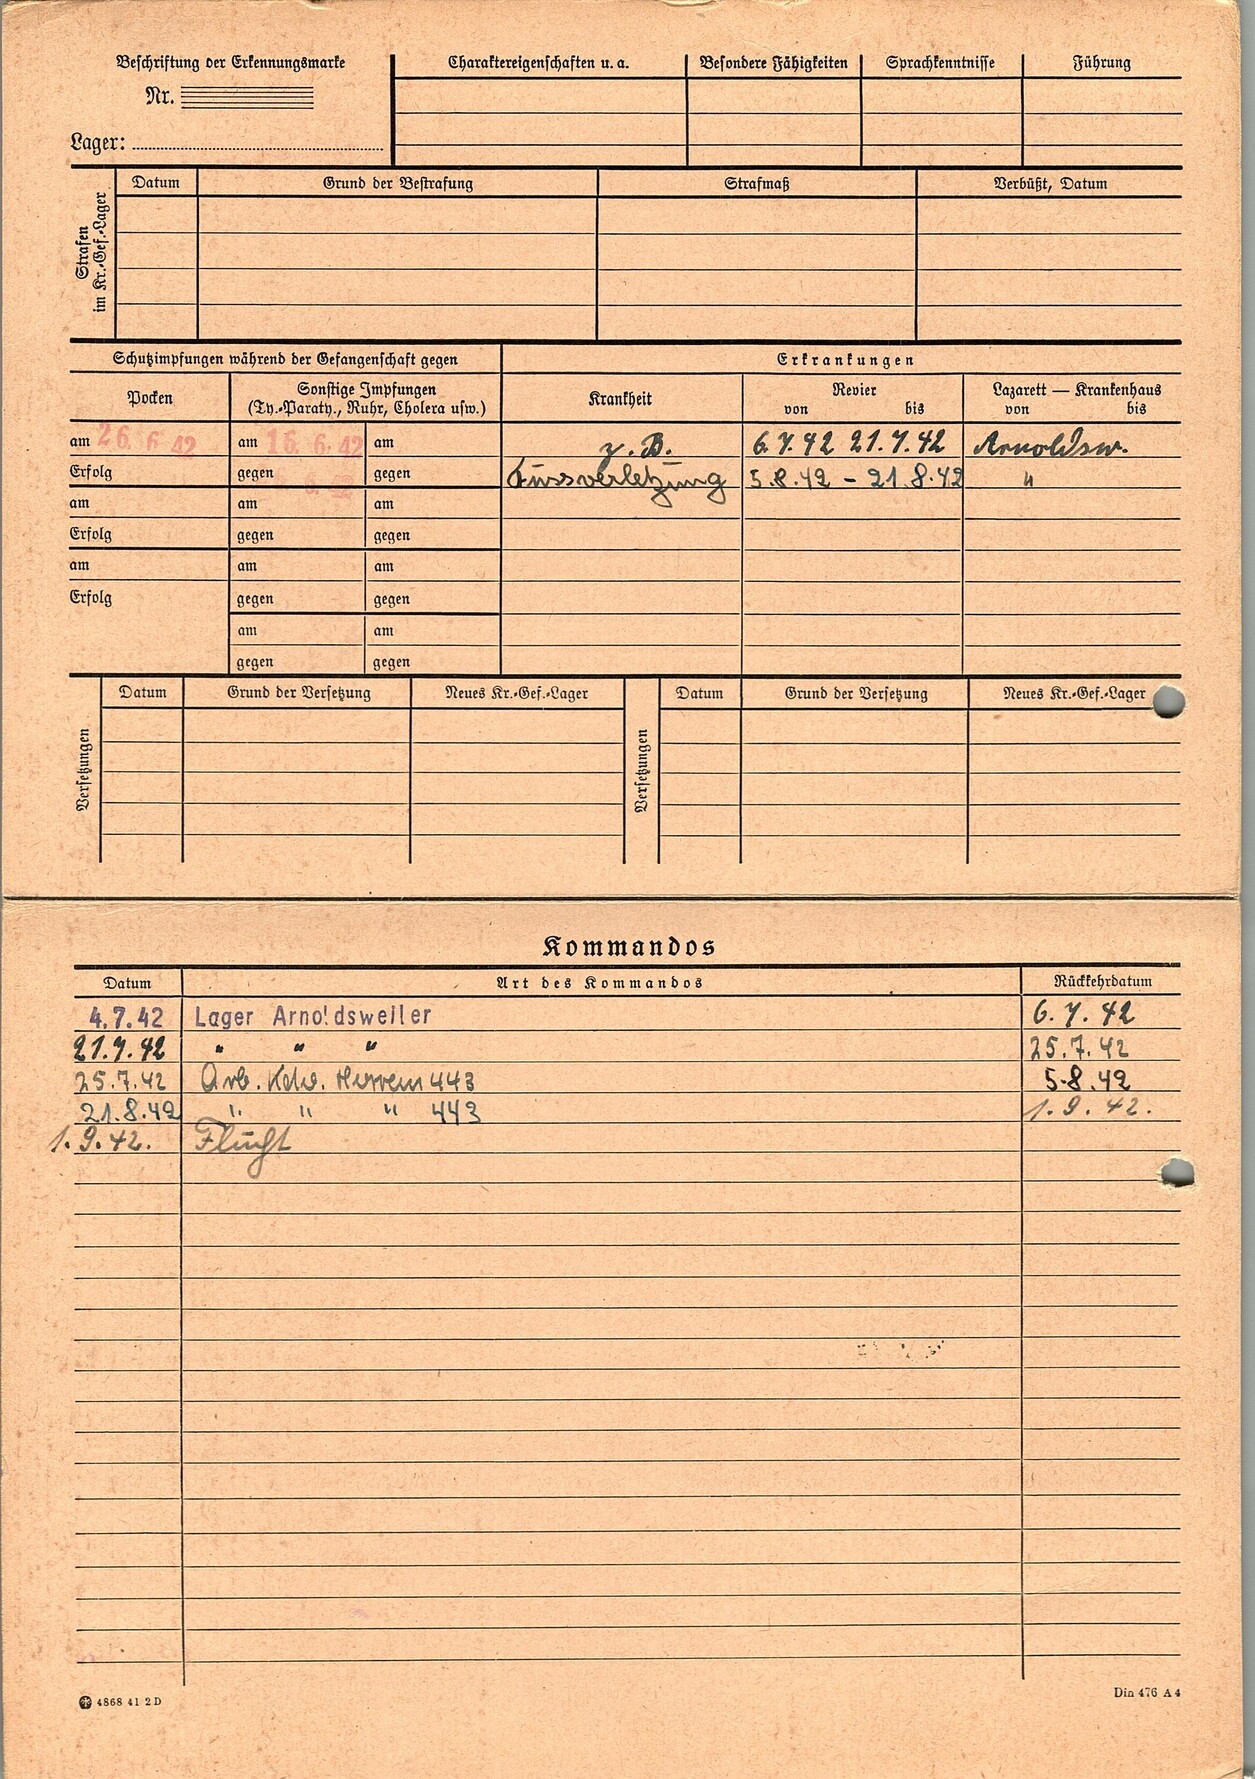 Beschriftung der Erkennungsmarke
Nr.
Lager:
Charaktereigenschaften u. a.
Besondere Fähigkeiten
Sprachkenntnisse
Führung
Strafen
im Kr.-Gef.-Lager
Datum
Grund der Bestrafung
Strafmaß
Verbüßt, Datum
Schutzimpfungen während der Gefangenschaft gegen
Erkrankungen
Pocken
Sonstige Impfungen
(Ty.-Paraty., Ruhr, Cholera usw.)
Krankheit
Revier
von bis
Lazarett — Krankenhaus
von bis
am 26. 6. 42 am 16. 6. 42 am z. B. 6.7.42 21.7.42 Arnoldsw.
Erfolg gegen gegen Fussverletzung 5.8.42 – 21.8.42 "
am am am
Erfolg gegen gegen
am am am
Erfolg gegen gegen
am am
gegen gegen
Versetzungen
Datum Grund der Versetzung Neues Kr.-Gef.-Lager
Versetzungen
Datum Grund der Versetzung Neues Kr.-Gef.-Lager
Kommandos
Datum Art des Kommandos Rückkehrdatum
4.7.42 Lager Arnoldsweiler 6.7.42
21.7.42 " " " 25.7.42
25.7.42 Arb. Kdo. Horrem 443 5.8.42
21.8.42 " " " 443 1.9.42.
1.9.42. Flucht
4868 41 2 D
Din 476 A 4